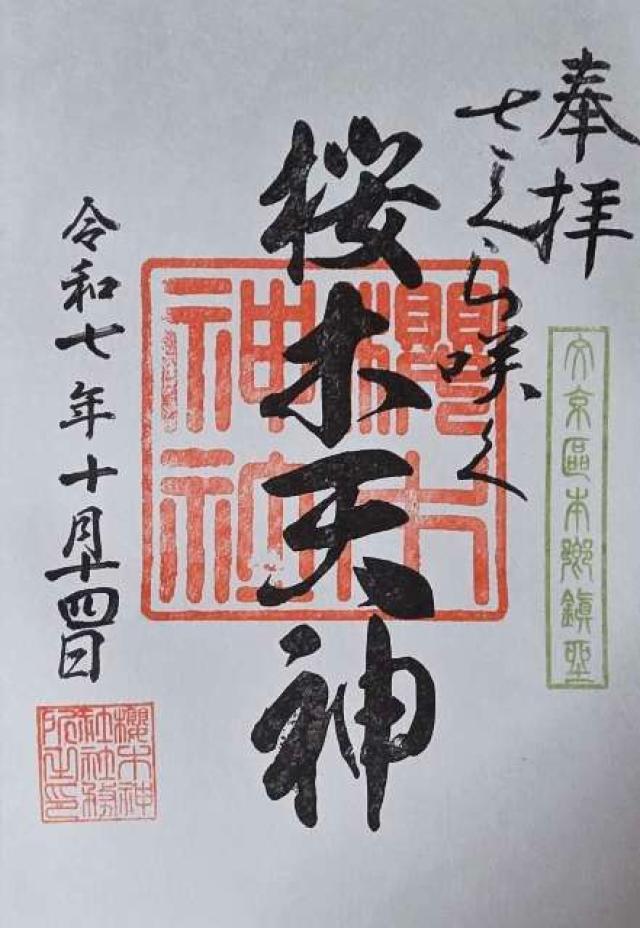 奉拝
さくら咲く
文京區本鄉鎮坐
桜木天神
櫻木
神社
令和七年十月十四日
櫻木神
社社務
所之印